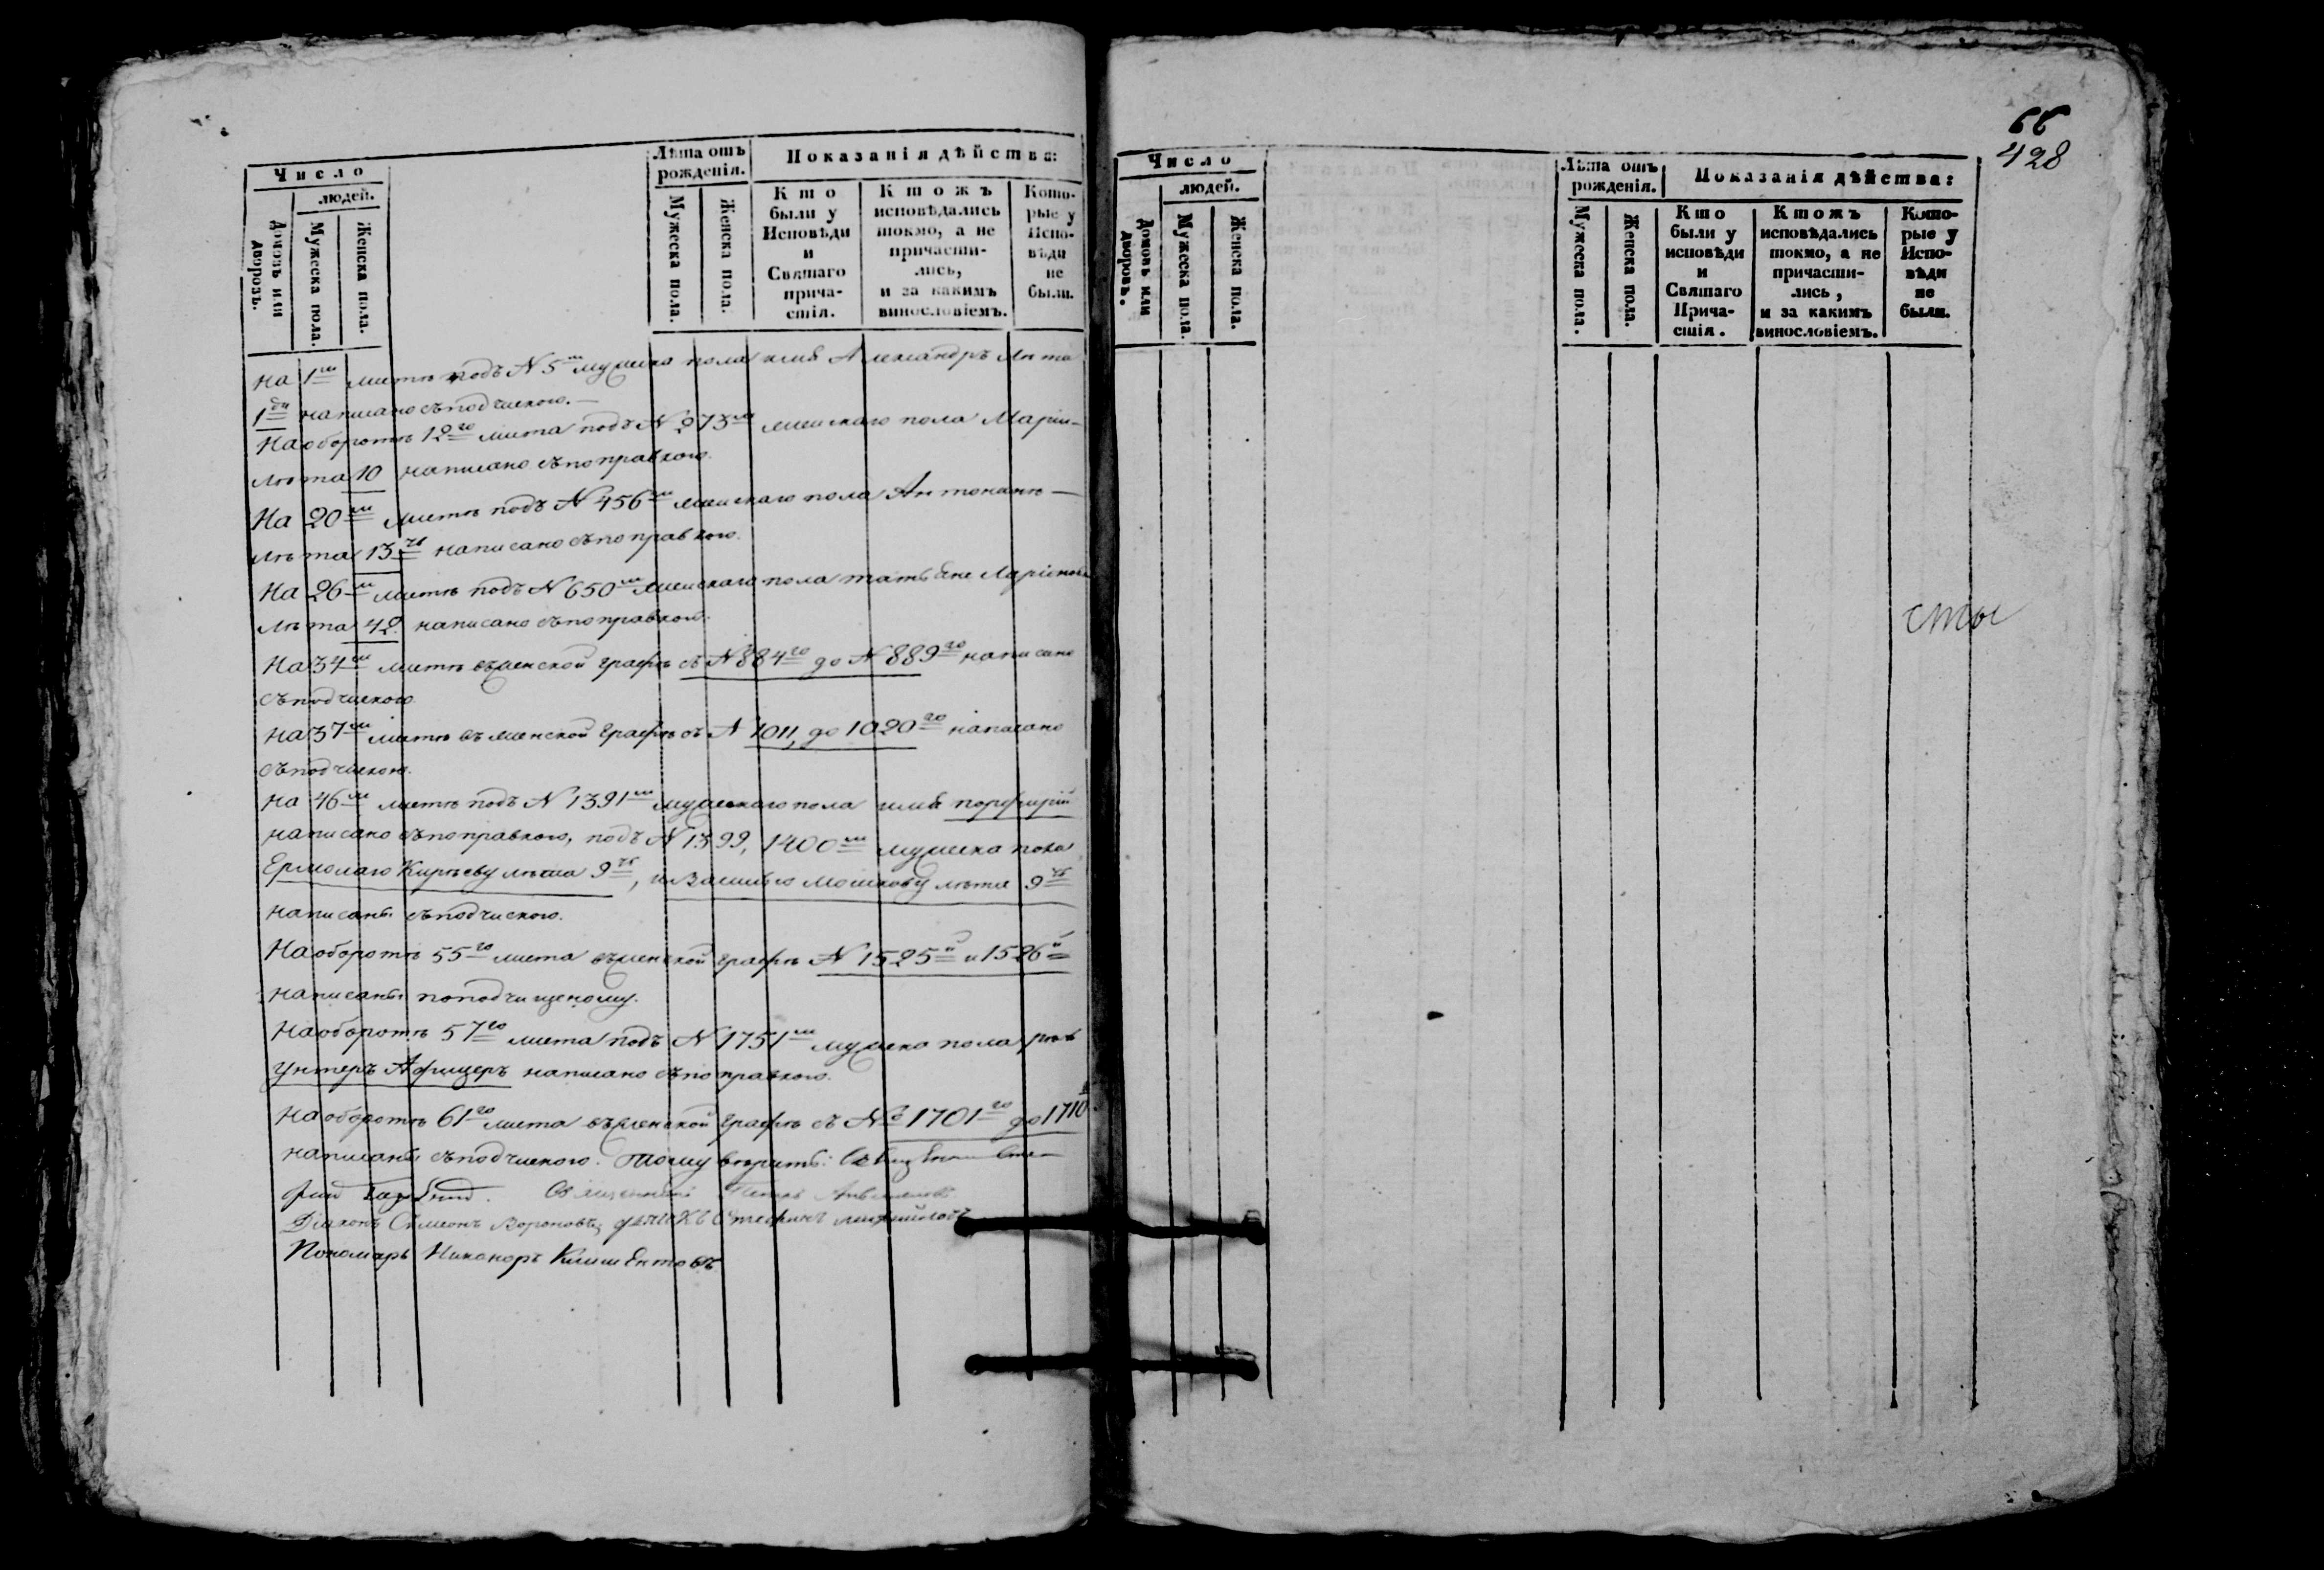 Число
людей.
Домовъ или дворовъ.
Мужеска пола.
Женска пола.
Лѣта отъ рожденія.
Мужеска пола.
Женска пола.
Показанія дѣйства:
Кто были у Исповѣди и Святаго причастія.
Ктожъ исповѣдались токмо, а не причастились, и за какимъ винословіемъ.
Которые у Исповѣди не были.
На 1мъ листѣ подъ N 5мъ мужеска пола имя Александръ лѣта
1 написано съ подчискою.
На оборотѣ 12го листа подъ N 273мъ женскаго пола Маріи
лѣта 10 написано съ поправкою.
На 20мъ листѣ подъ N 456мъ женскаго пола
лѣта 13ть написано съ поправкою.
На 26мъ листѣ подъ N 650мъ женскаго пола татьяне
лѣта 42 написано съ поправкою.
На 34мъ листѣ въ женской графѣ съ N 884го до N 889го написано
съ подчискою
на 37мъ листѣ въ женской графѣ съ N 1011, до 1020го написано
съ подчискою.
на 46мъ листѣ подъ N 1391мъ мужескаго пола имя порфирій
написано съ поправкою, подъ N 1399, 1400мъ мужеска пола
Ермолаю Кирѣеву лѣта 9ть, и Василью Мошкову лѣта 9ть
написаны съ подчискою.
На оборотѣ 55го листа въ женской графѣ N 1525й и 1526й
написаны по подчищеному.
На оборотѣ 57го листа подъ N 1751мъ мужеска пола
Унтеръ Афицеръ написано съ поправкою.
На оборотѣ 61го листа въ женской графѣ съ № 1701го до 1710
написаны съ подчискою.
Діаконъ Симеонъ Вороновъ
Пономарь Никаноръ
66
428
Число
людей.
Домовъ или дворовъ.
Мужеска пола.
Женска пола.
Лѣта отъ рожденія.
Мужеска пола.
Женска пола.
Показанія дѣйства:
Кто были у исповѣди и Святаго Причастія.
Ктожъ исповѣдались токмо, а не причастились, и за какимъ винословіемъ.
Которые у Исповѣди не были.
сты